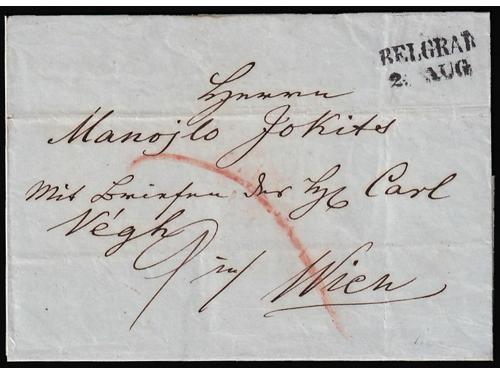 BELGRAD
2. AUG
Herrn
Manojlo Jokits
Mit Briefen der HH Carl
Végh
in
Wien